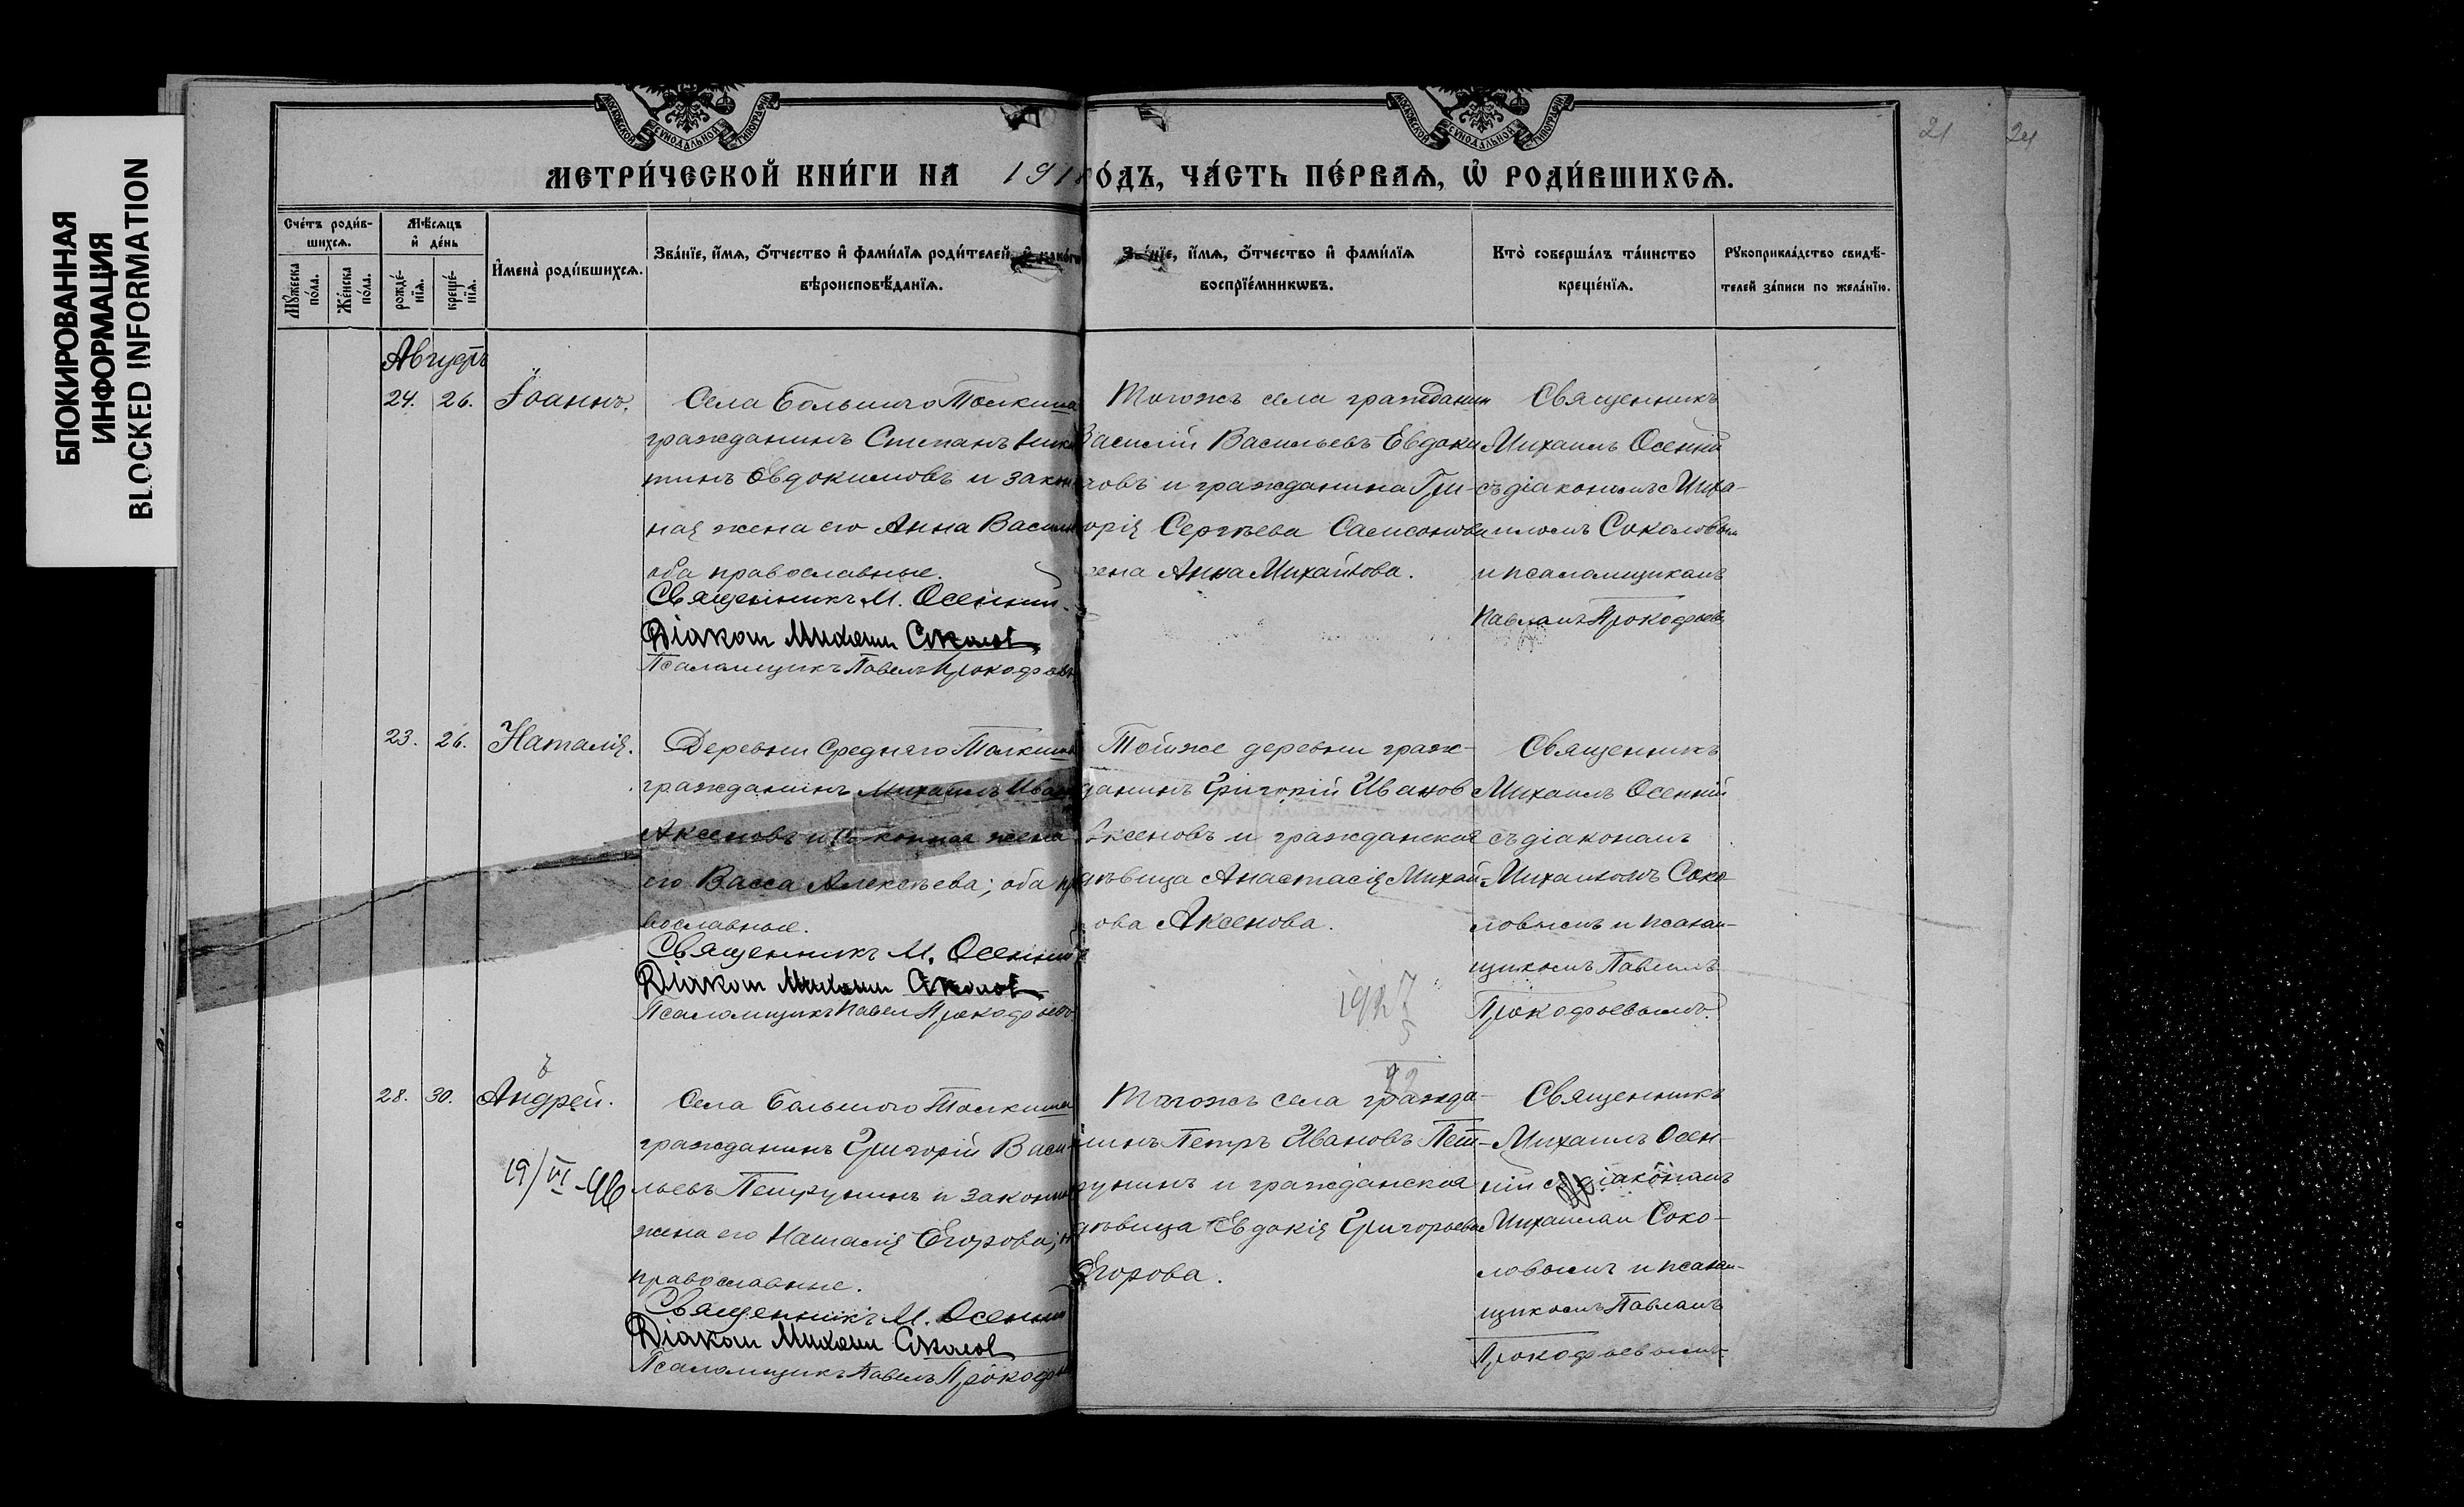 БЛОКИРОВАННАЯ
ИНФОРМАЦИЯ
BLOCKED INFORMATION
МОСКОВСКОЙ СѴНОДАЛЬНОЙ ТИПОГРАФІИ
МОСКОВСКОЙ СѴНОДАЛЬНОЙ ТИПОГРАФІИ
21 24
МЕТРИ́ЧЕСКОЙ КНИ́ГИ НА 1918 ГО́ДЪ, ЧА́СТЬ ПЕ́РВАѦ, Ѡ҆ РОДИ́ВШИХСѦ.
Сче́тъ роди́в-
шихсѧ.
Мꙋ́жеска
по́ла.
Же́нска
по́ла.
Мѣ́сѧцъ
и҆ де́нь
рожде́-
нїѧ.
креще́-
нїѧ.
И҆мена̀ роди́вшихсѧ.
Зва́нїе, и҆́мѧ, ѻ҆́тчество и҆ фами́лїѧ роди́телей, и҆ како́гѡ
вѣроисповѣ́данїѧ.
Зва́нїе, и҆́мѧ, ѻ҆́тчество и҆ фами́лїѧ
воспрїе́мникѡвъ.
Кто̀ соверша́лъ та́инство
креще́нїѧ.
Рꙋкоприкла́дство свидѣ́-
телей за́писи по жела́нїю.
Августъ
24. 26. Іоаннъ.
Села Большаго Толкина
гражданинъ Степанъ Ники
тинъ Евдокимовъ и закон
ная жена его Анна Васил
оба православные.
Священникъ М. Осенній
Діакон Михаил Соколов
Псаломщикъ Павелъ Прокофьевъ
Тогожъ села гражданин
Василій Васильевъ Евдоки
мовъ и гражданина Гри-
горія Сергѣева Самсонова
жена Анна Михайлова.
Священникъ
Михаилъ Осенній
съ діакономъ Миха-
иломъ Соколовым
и псаломщикомъ
Павломъ Прокофьевъ
23. 26. Наталія.
Деревни Средняго Толкина
гражданинъ Михаилъ Иван
Аксеновъ и законная жена
его Васса Алексѣева; оба пр
вославные.
Священникъ М. Осенній
Діакон Михаил Соколов
Псаломщикъ Павел Прокофьевъ
Тойже деревни граж-
данинъ Григорій Иванов
Аксеновъ и гражданская
дѣвица Анастасія Михай-
ова Аксенова.
Священникъ
Михаилъ Осенній
съ діакономъ
Михаиломъ Соко-
ловымъ и псалом-
щикомъ Павломъ
Прокофьевымъ.
28. 30. Андрей.
19/VI-46
Села Большого Толкина
гражданинъ Григорій Васи-
льевъ Петрунинъ и законная
жена его Наталія Егорова;
православные.
Священникъ М. Осенній
Діакон Михаил Соколов
Псаломщикъ Павелъ Прокофь
Тогожъ села гражда-
нинъ Петръ Ивановъ Пет-
рунинъ и гражданская
дѣвица Евдокія Григорьева
Егорова.
Священникъ
Михаилъ Осен-
ній съ діакономъ
Михаилом Соко-
ловымъ и псалом-
щикомъ Павломъ
Прокофьевымъ